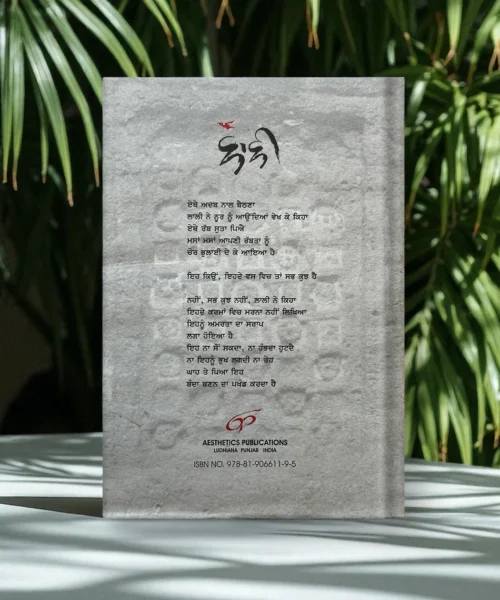 ਏਥੇ ਅਦਬ ਨਾਲ ਬੈਠਣਾ
ਲਾਲੀ ਨੇ ਨੂਰ ਨੂੰ ਆਉਂਦਿਆਂ ਵੇਖ ਕੇ ਕਿਹਾ
ਏਥੇ ਰੱਬ ਸੁਤਾ ਪਿਐ
ਮਸਾਂ ਮਸਾਂ ਆਪਣੀ ਰੱਬਤਾ ਨੂੰ
ਚੋਰ ਭੁਲਾਈ ਦੇ ਕੇ ਆਇਆ ਹੈ
ਇਹ ਕਿਉਂ, ਇਹਦੇ ਵਸ ਵਿਚ ਤਾਂ ਸਭ ਕੁਝ ਹੈ
ਨਹੀਂ, ਸਭ ਕੁਝ ਨਹੀਂ, ਲਾਲੀ ਨੇ ਕਿਹਾ
ਇਹਦੇ ਕਰਮਾਂ ਵਿਚ ਮਰਨਾ ਨਹੀਂ ਲਿਖਿਆ
ਇਹਨੂੰ ਅਮਰਤਾ ਦਾ ਸਰਾਪ
ਲਗਾ ਹੋਇਆ ਹੈ
ਇਹ ਨਾ ਸੌਂ ਸਕਦਾ, ਨਾ ਹੰਭਦਾ ਹੁਟਦੈ
ਨਾ ਇਹਨੂੰ ਭੁਖ ਲਗਦੀ ਨਾ ਤ੍ਰੇਹ
ਘਾਹ ਤੇ ਪਿਆ ਇਹ
ਬੰਦਾ ਬਣਨ ਦਾ ਪਖੰਡ ਕਰਦਾ ਹੈ
AESTHETICS PUBLICATIONS
LUDHIANA PUNJAB INDIA
ISBN NO. 978-81-906611-9-5